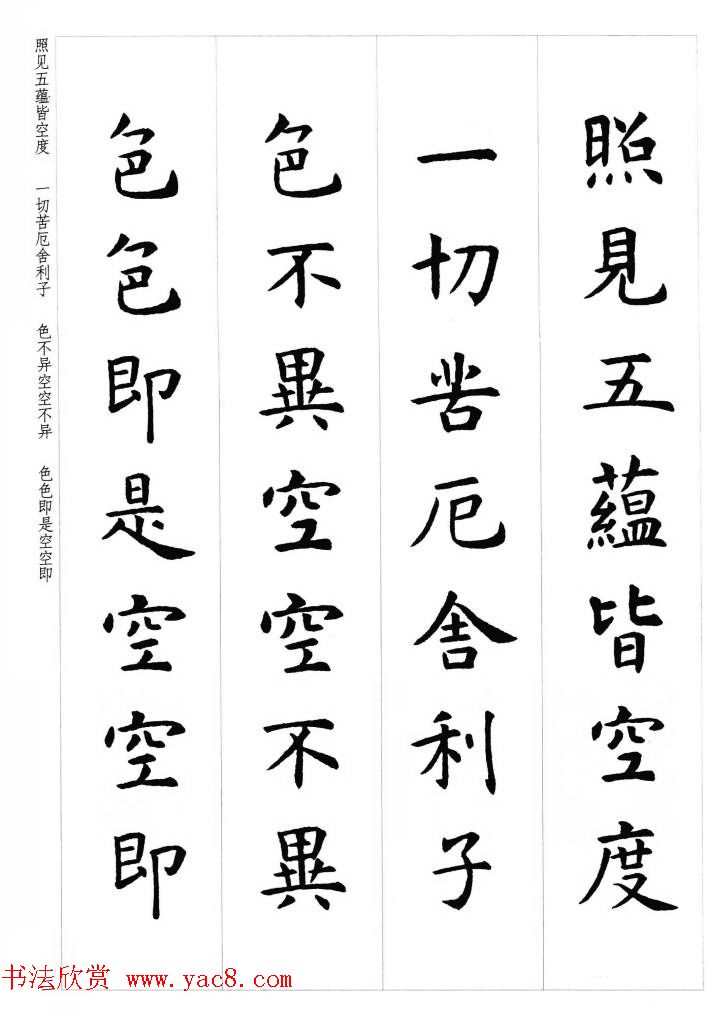 照見五蘊皆空度
一切苦厄舍利子
色不異空空不異
色色即是空空即
照见五蕴皆空度 一切苦厄舍利子 色不异空空不异 色色即是空空即
书法欣赏 www.yac8.com